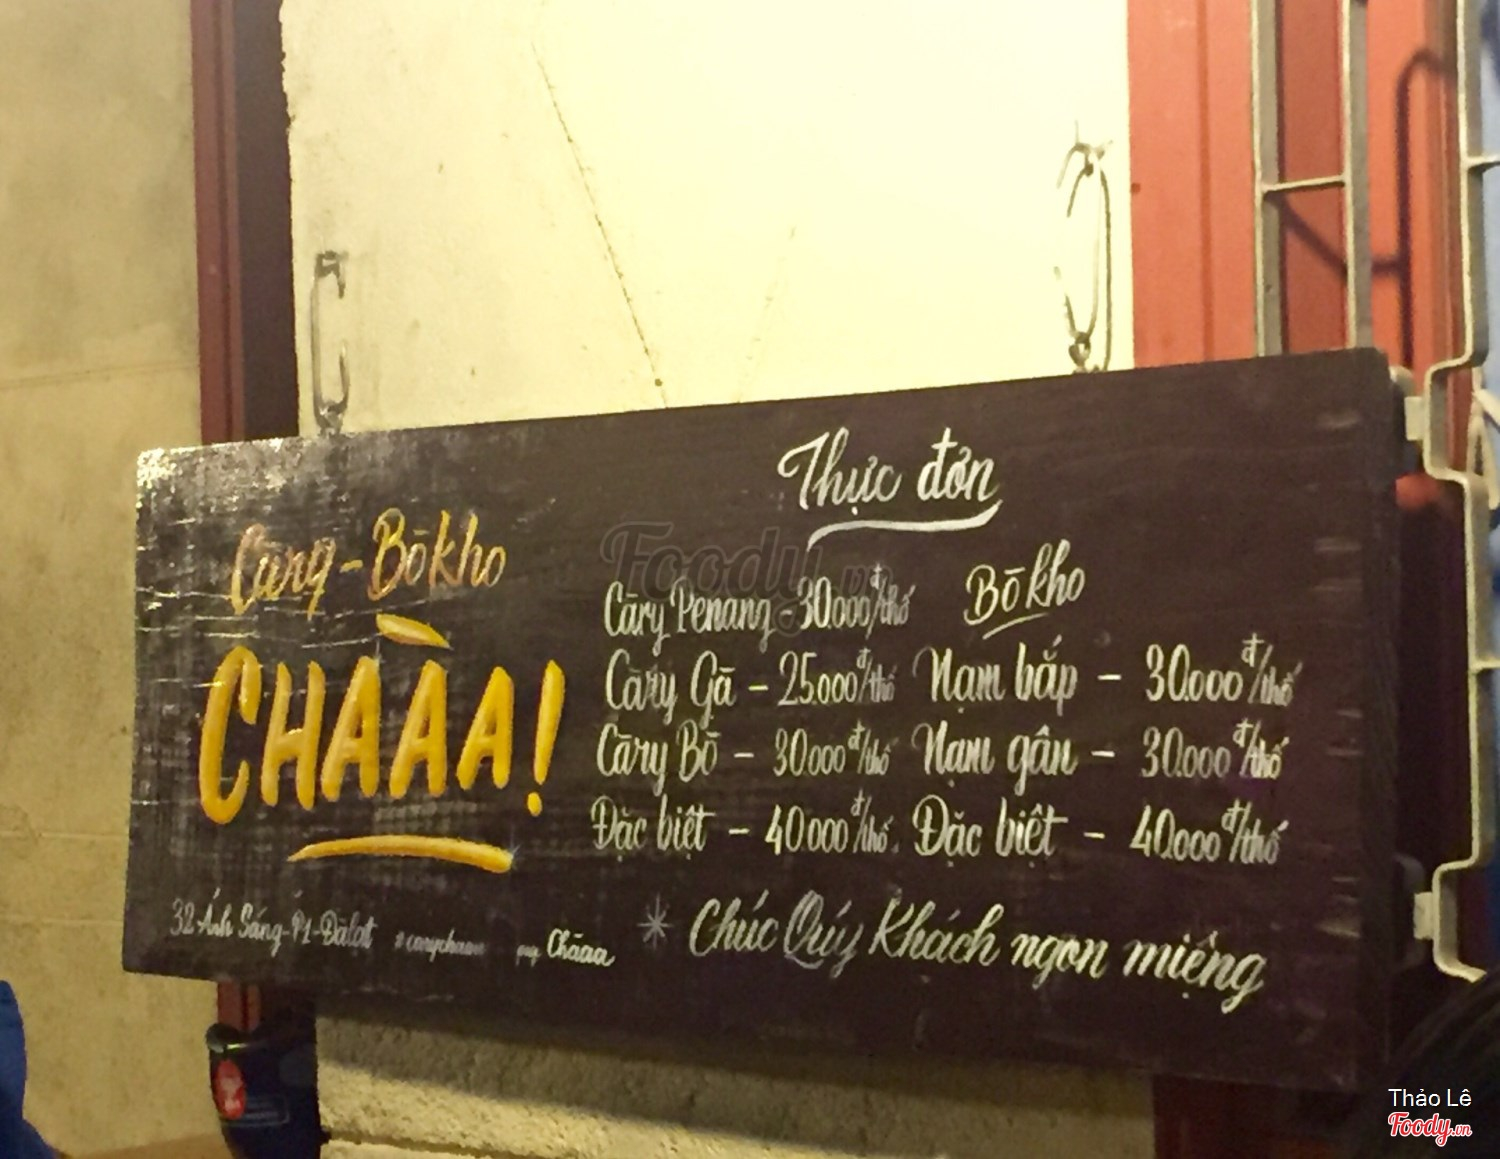 Càry - Bò kho
CHÀAA!
32 Ánh Sáng - P1 - Đàlạt
Chàaa
Thực đơn
Càry Penang - 30.000đ/thố
Càry Gà - 25.000đ/thố
Càry Bò - 30.000đ/thố
Đặc biệt - 40.000đ/thố
Bò kho
Nạm bắp - 30.000đ/thố
Nạm gân - 30.000đ/thố
Đặc biệt - 40.000đ/thố
* Chúc Quý Khách ngon miệng
Foody.vn
Thảo Lê
Foody.vn